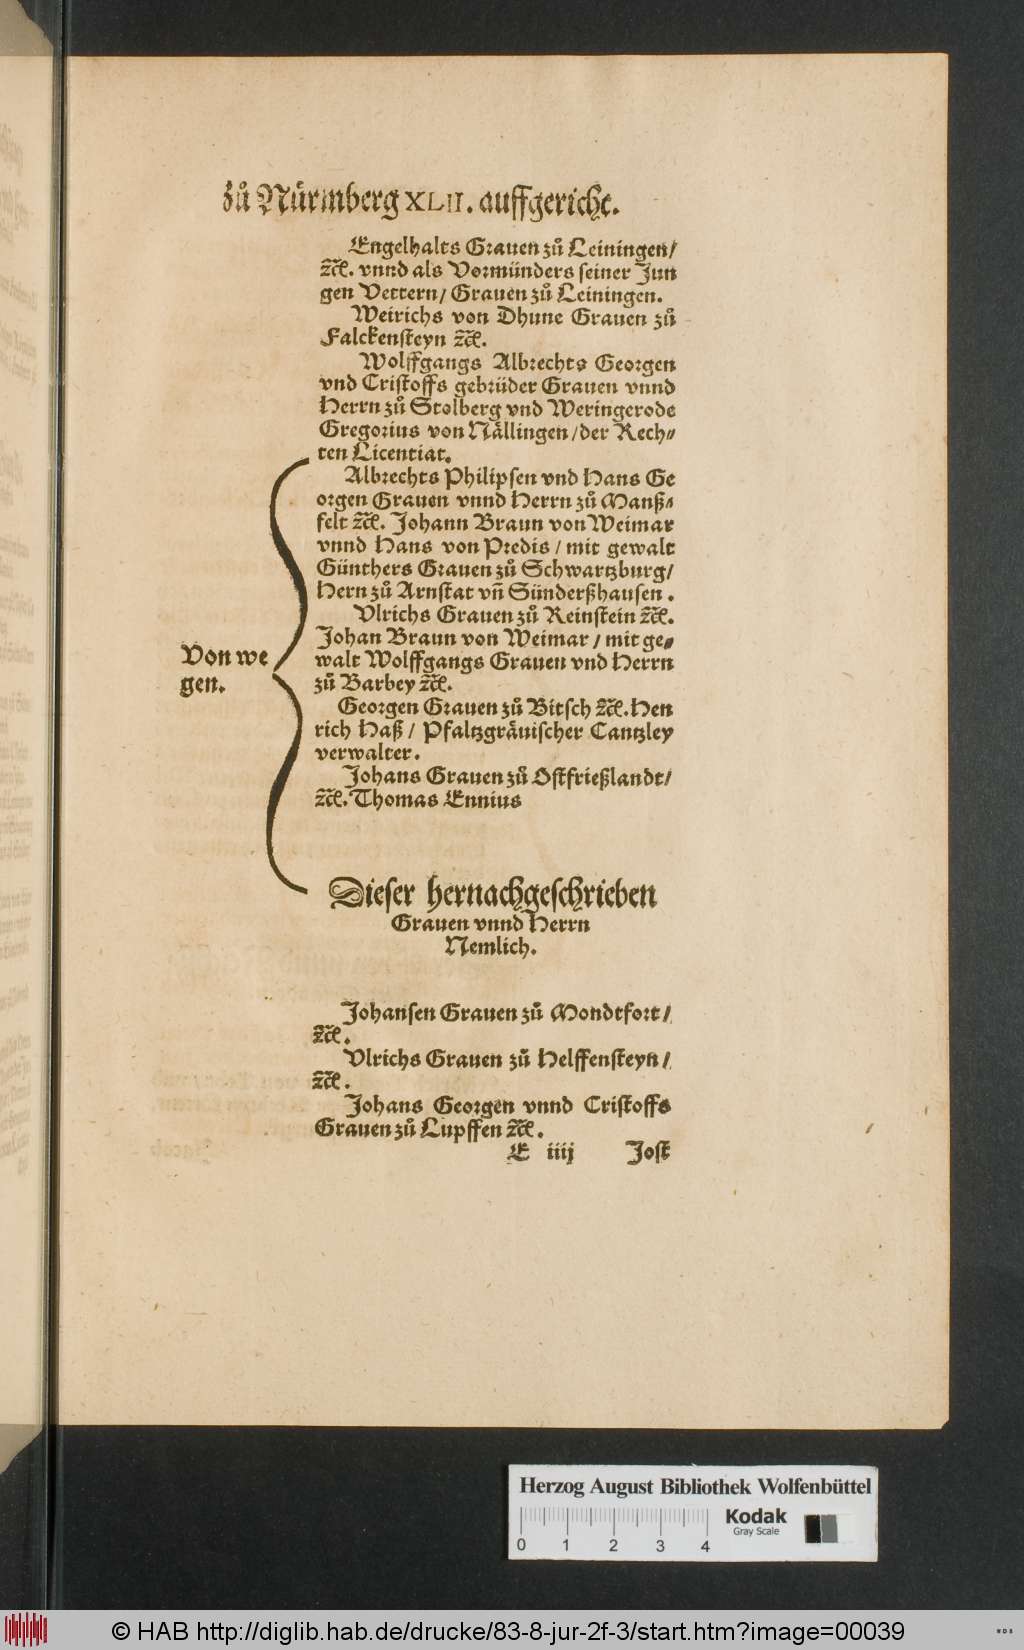 zů Nürmberg XLII. auffgericht.
Engelhalts Grauen zů Leiningen/
ꝛc̃. vnnd als Vormünders seiner Jun
gen Vettern/ Grauen zů Leiningen.
Weirichs von Dhune Grauen zů
Falckensteyn ꝛc̃.
Wolffgangs Albrechts Georgen
vnd Cristoffs gebrüder Grauen vnnd
Herrn zů Stolberg vnd Weringerode
Gregorius von Nällingen/der Rech⸗
ten Licentiat.
Albrechts Philipsen vnd Hans Ge
orgen Grauen vnnd Herrn zů Manß⸗
felt ꝛc̃. Johann Braun von Weimar
vnnd Hans von Predis / mit gewalt
Günthers Grauen zů Schwartzburg/
Hern zů Arnstat vñ Sünderßhausen.
Vlrichs Grauen zů Reinstein ꝛc̃.
Johan Braun von Weimar / mit ge⸗
Von we
walt Wolffgangs Grauen vnd Herrn
gen.
zů Barbey ꝛc̃.
Georgen Grauen zů Bitsch ꝛc̃. Hen
rich Haß / Pfaltzgräuischer Cantzley
verwalter.
Johans Grauen zů Ostfrießlandt/
ꝛc̃. Thomas Ennius
Dieser hernachgeschrieben
Grauen vnnd Herrn
Nemlich.
Johansen Grauen zů Mondtfort/
ꝛc̃.
Vlrichs Grauen zů Helffensteyn/
ꝛc̃.
Johans Georgen vnnd Cristoffs
Grauen zů Lupffen ꝛc̃.
E iiij Jost
Herzog August Bibliothek Wolfenbüttel
Kodak
Gray Scale
0 1 2 3 4
© HAB http://diglib.hab.de/drucke/83-8-jur-2f-3/start.htm?image=00039